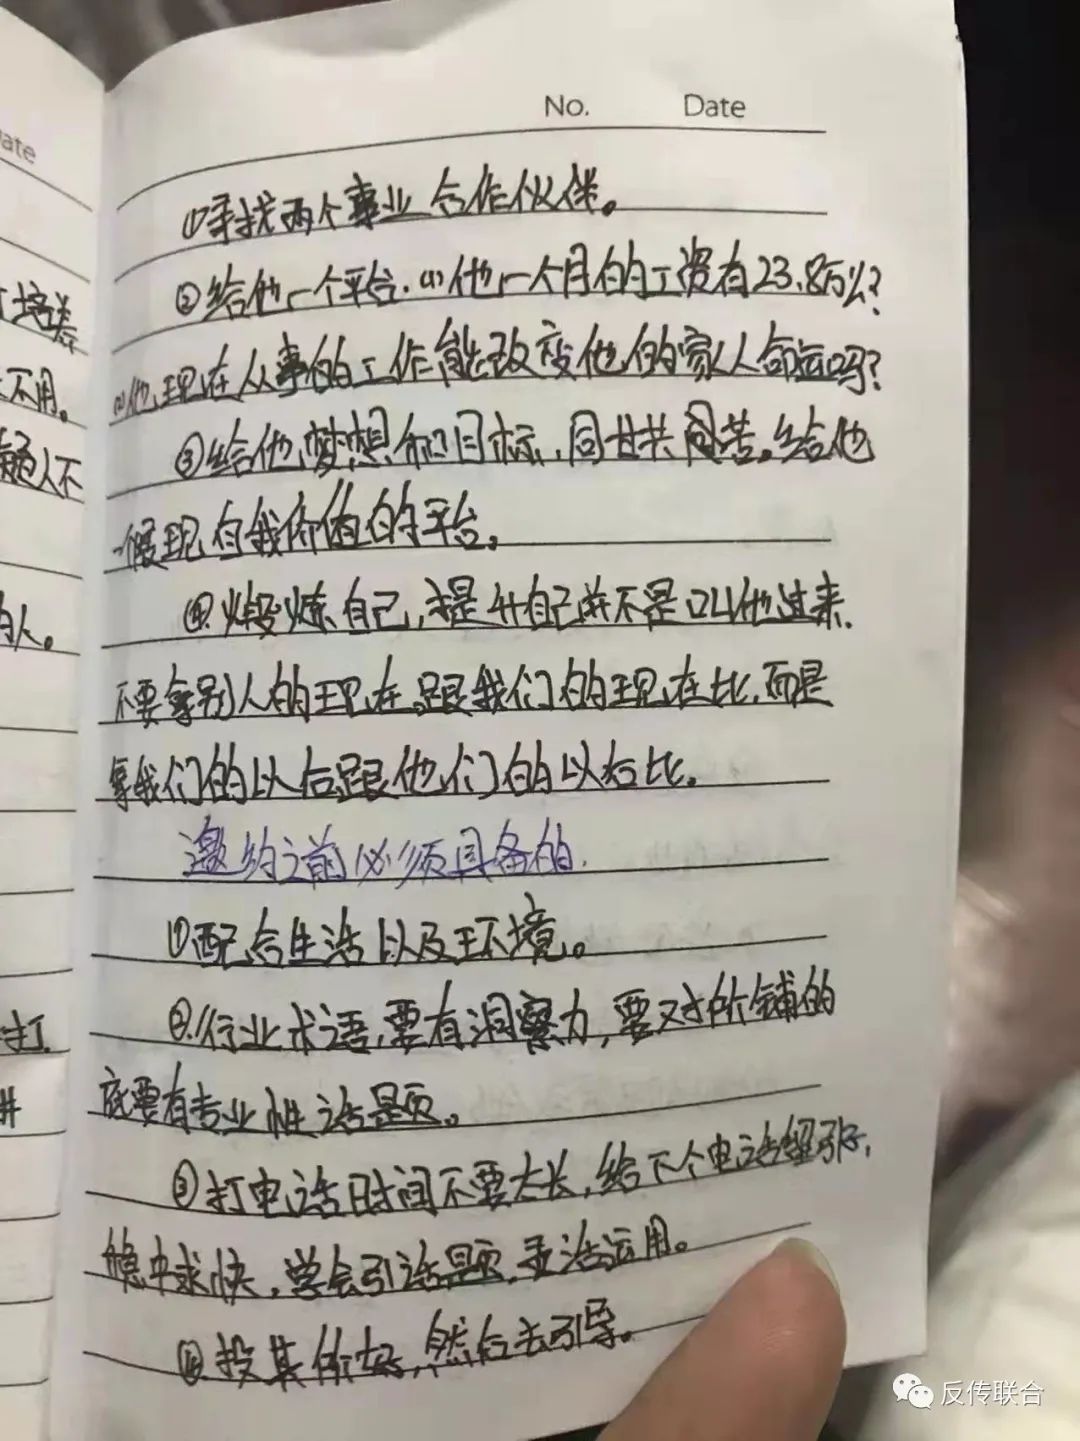 No. Date
ate
①寻找两个事业合作伙伴。
②给他一个平台.(1)他一个月的工资有23.8万么?
(2)他现在从事的工作能改变他的家人命运吗?
③给他梦想和目标,同甘共同苦。给他
一个展现自我价值的平台。
④.煅炼自己,提升自己并不是叫他过来.
不要拿别人的现在跟我们的现在比,而是
拿我们的以后跟他们的以后比。
邀约之前必须具备的.
①配合生活以及环境。
②.行业术语,要有洞察力,要对所铺的
底要有专业性话题。
③打电话时间不要太长,给下个电话留引子,
稳中求快,学会引话题,灵活运用。
④.投其所好,然后去引导。
培养
不用。
疑人不
的人。
打
反传联合